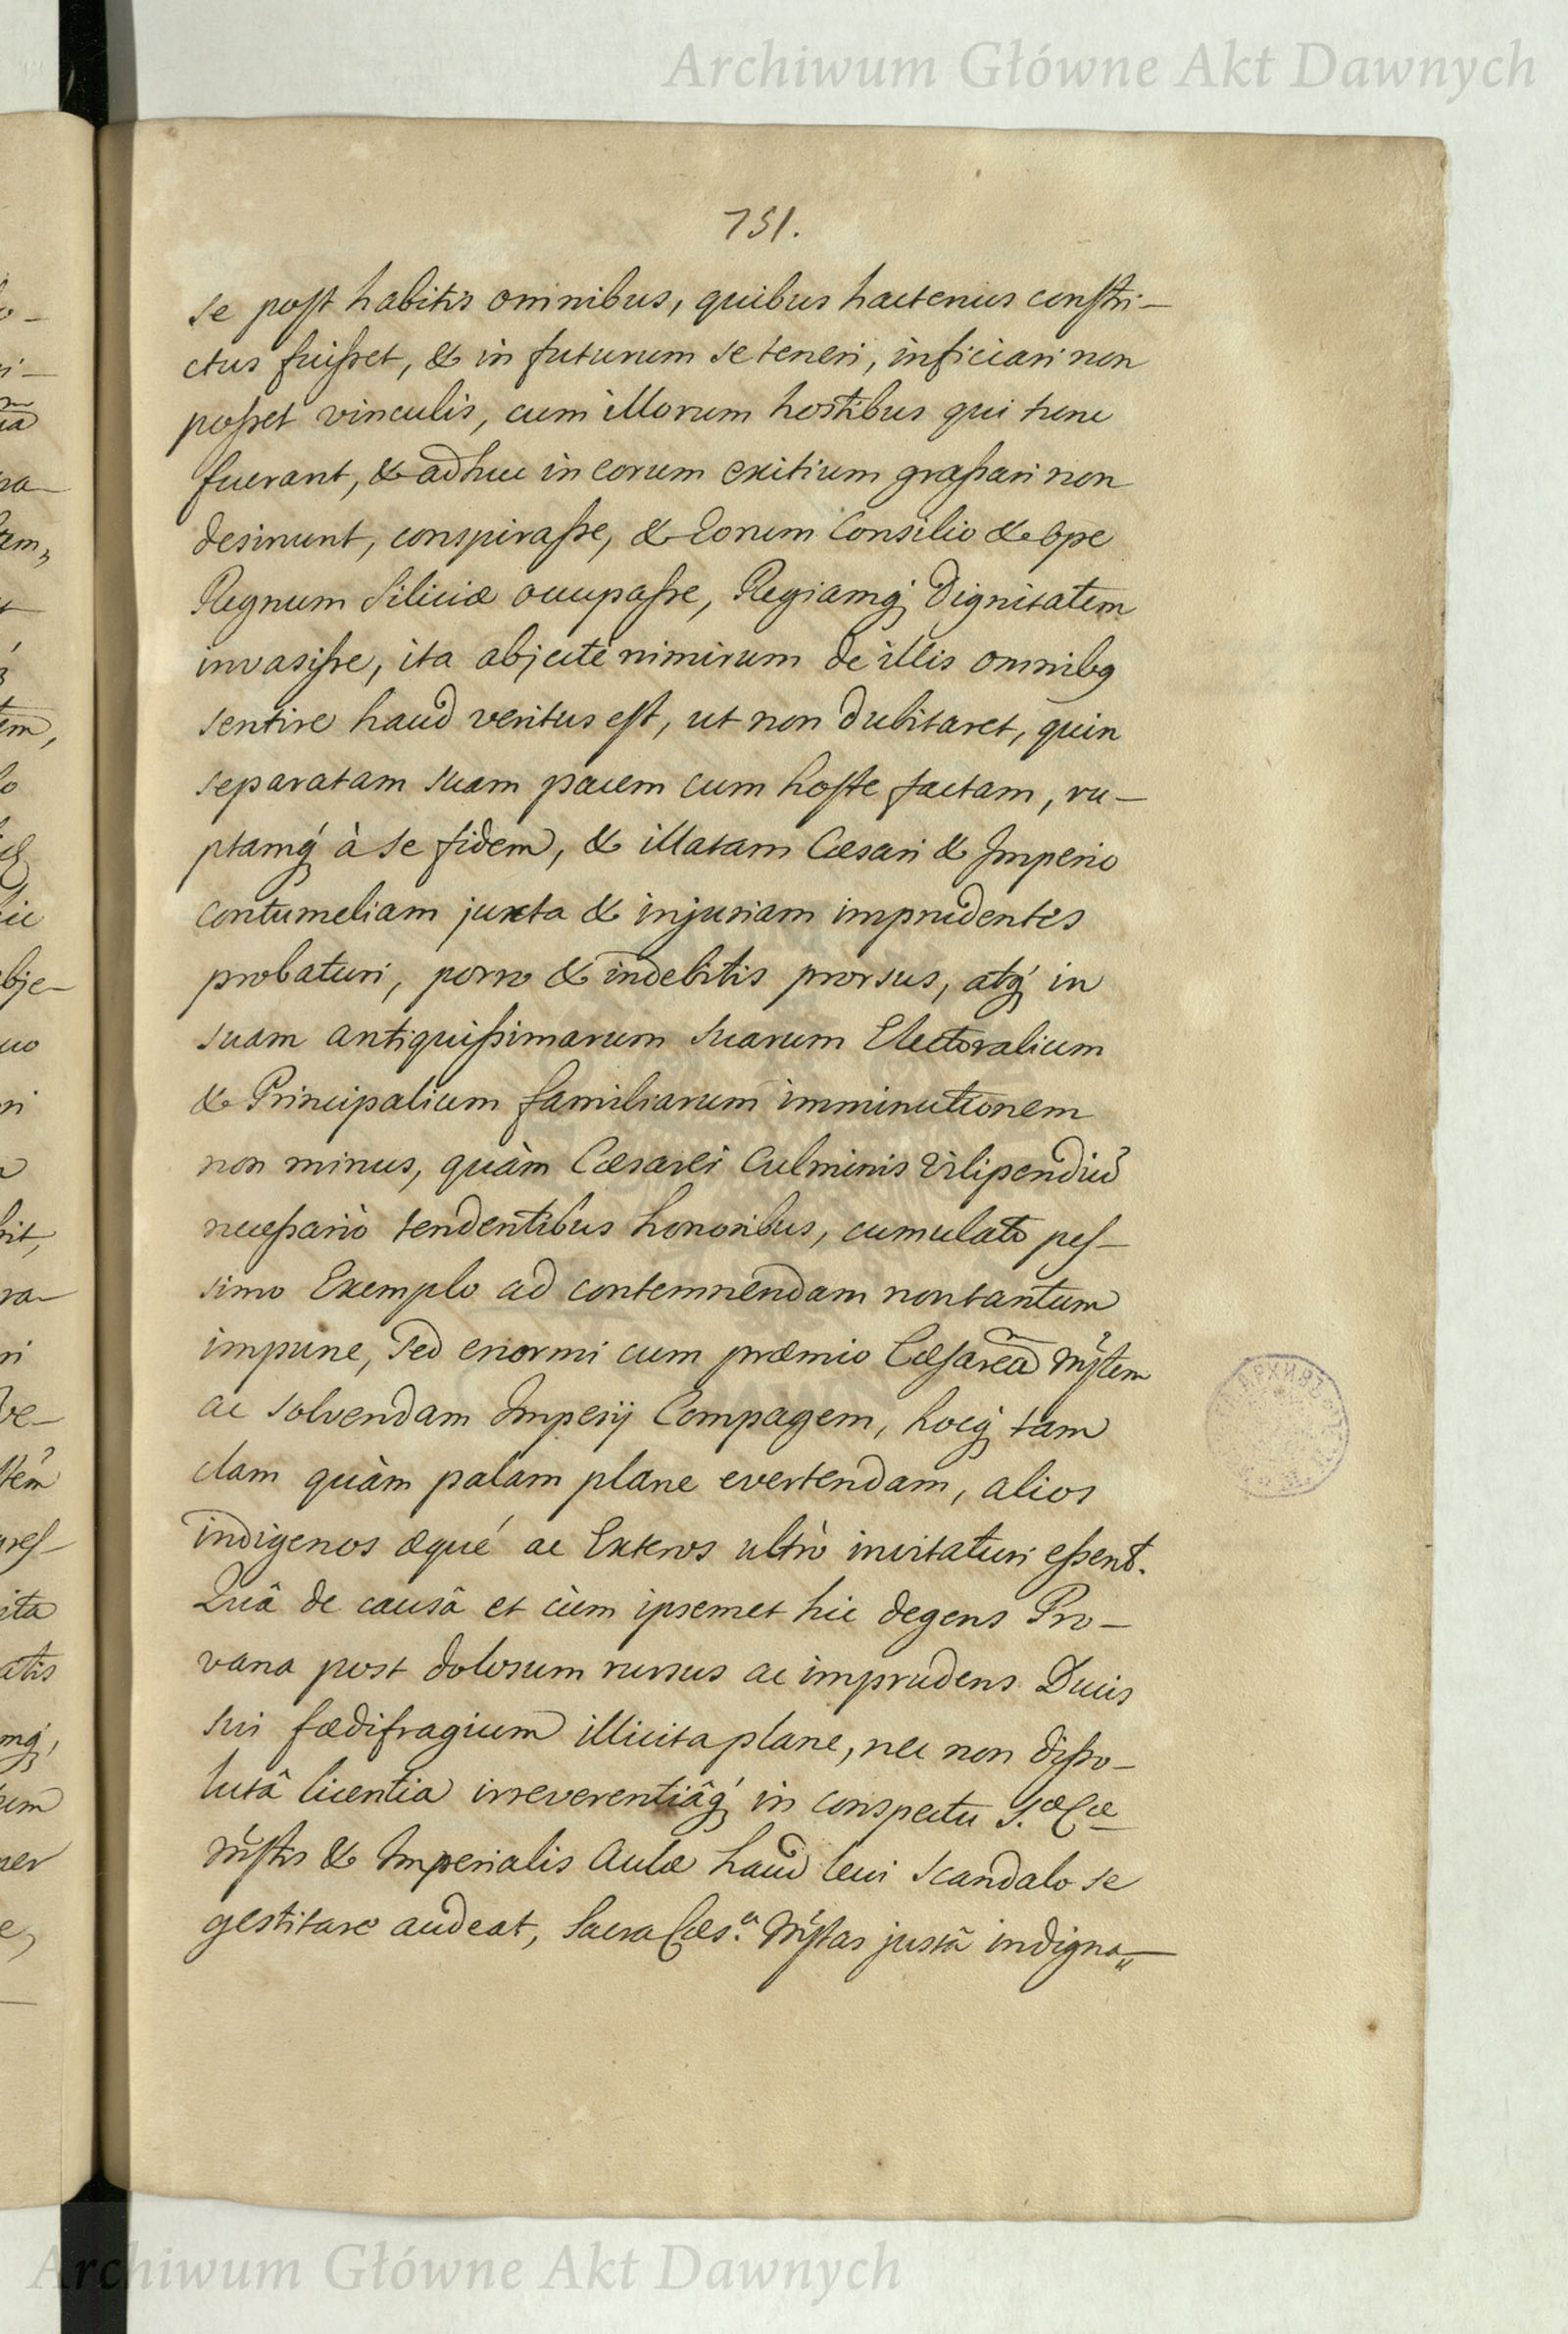 Archiwum Główne Akt Dawnych
751.
se post habitis omnibus, quibus hactenus constri-
ctus fuisset, & in futurum se teneri, inficiari non
posset vinculis, cum illorum hostibus qui tunc
fuerant, & adhuc in eorum exitium grassari non
desinunt, conspirasse, & Eorum Consilio & ope
Regnum Siliciæ occupasse, Regiamq; Dignitatem
invasisse, ita abjectè nimirum de illis omnibq
sentire haud veritus est, ut non dubitaret, quin
separatam suam pacem cum hoste factam, ru-
ptamq; à se fidem, & illatam Cæsari & Imperio
contumeliam juxta & injuriam imprudentes
probaturi, porro & indebitis prorsus, atq; in
suam antiquissimarum suarum Electoralium
& Principalium familiarum imminutionem
non minus, quàm Cæsarei Culminis Vilipendiū
necessariò tendentibus honoribus, cumulato pes-
simo Exemplo ad contemnendam nontantum
impune, sed enormi cum præmio Cæsareã Mṡtem
ac solvendam Imperij Compagem, hocq; tam
clam quàm palam plane evertendam, alios
indigenos æqué ac Exteros ultrò invitaturi essent.
Quâ de causâ et cùm ipsemet hic degens Pro-
vana post dolosum rursus ac imprudens Ducis
sui fœdifragium illicita plane, nec non disso-
lutâ licentia irreverentiâq; in conspectu S.æ Cæ
Mṡtis & Imperialis Aulæ haud levi scandalo se
gestitare audeat, Sacra Cæs.a Mṡtas justâ indigna-
Archiwum Główne Akt Dawnych